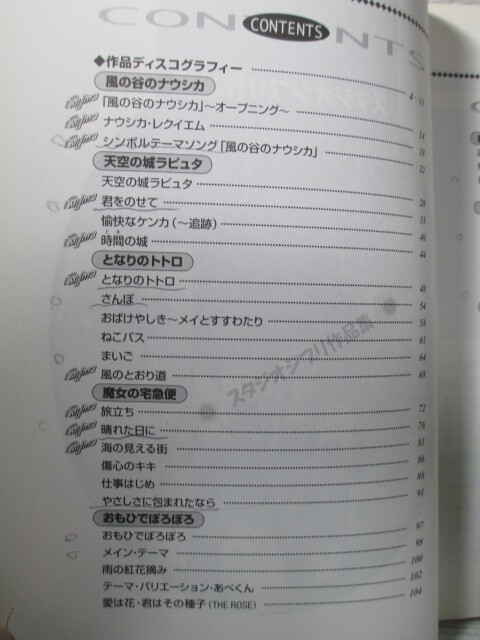 CONTENTS
CONTENTS
◆作品ディスコグラフィー 4~13
風の谷のナウシカ
「風の谷のナウシカ」~オープニング~ 14
ナウシカ・レクイエム 18
シンボルテーマソング「風の谷のナウシカ」 22
天空の城ラピュタ
天空の城ラピュタ 28
君をのせて 33
愉快なケンカ(~追跡) 40
時間の城 44
となりのトトロ
となりのトトロ 48
さんぽ 54
おばけやしき~メイとすすわたり 58
ねこバス 61
まいご 64
風のとおり道 68
魔女の宅急便
旅立ち 72
晴れた日に 76
海の見える街 81
傷心のキキ 86
仕事はじめ 88
やさしさに包まれたなら 91
おもひでぽろぽろ
おもひでぽろぽろ 97
メイン・テーマ 98
雨の紅花摘み 100
テーマ・バリエーション・あべくん 102
愛は花・君はその種子(THE ROSE) 104
スタジオジブリ作品集